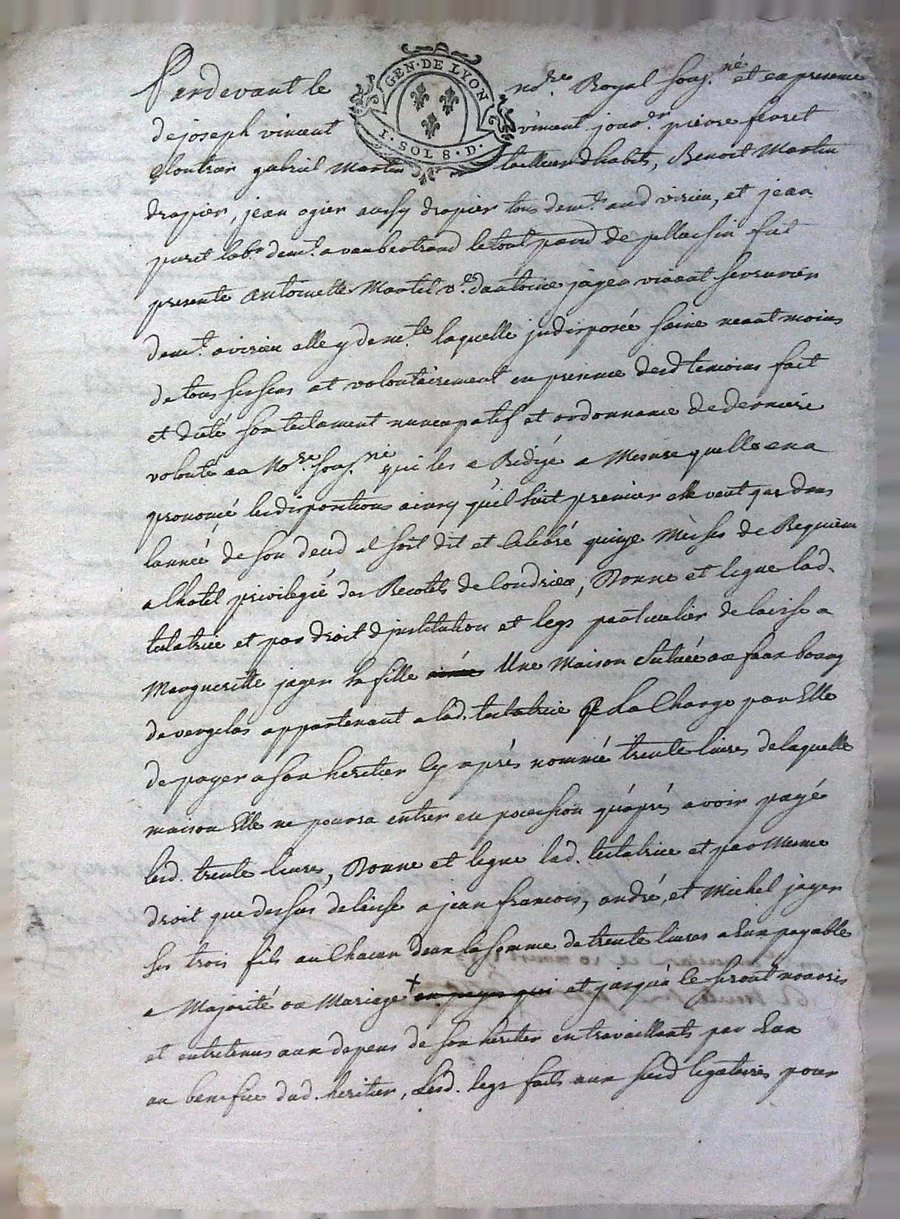 GEN · DE LYON
1 · SOL 8 · D ·
Pardevant le no.re Royal sous.né et en presence
de joseph vincent vincent jou.er pierre ferret
gabriel Martin tailleur dhabits, Benoit Martin
drapier, jean ogier aussy drapier tous dem.t aud virieu, et jean
puret lab.r dem.t a vaubertrand le tout parr.e de pellussin fut
presente antoinette Martel v.e dantoine jagen vivant serrurier
dem.t a virieu elle y dem.te laquelle indisposée saine neantmoins
de tous ses sens et volontairement en presence desd temoins fait
et dicté son testament nuncupatif et ordonnance de derniere
volonté au No.re sous.né qui les a Redigé a Mesure quelle en a
prononcé les dispositions ainsy qu'il suit premier elle veut que dans
lannée de son deced il soit dit et Celebré quinze Messes de Requiem
a lhotel privilegié des Recolets de Condrieu, Donne et legue lad.
testatrice et par droit d'institution et legs particulier delaisse a
Margueritte jagen sa fille Une Maison Scituée au faux bourg
de appartenant a lad. testatrice a La Charge par Elle
de payer a son heritier Cy après nommé trente livres de laquelle
maison Elle ne pourra entrer en possession qu'après avoir payé
lesd. trente livres, Donne et legue lad. testatrice et par Meme
droit que dessus delaisse a jean francois, andré, et Michel jagen
ses trois fils au Chacun deux la somme de trente livres a Eux payable
a Majorité ou Mariage + et jusqua le seront nourris
et entretenus aux depens de son heritier en travaillants par Eux
au benefice dud. heritier, lesd. legs faits aux susd legataires pour